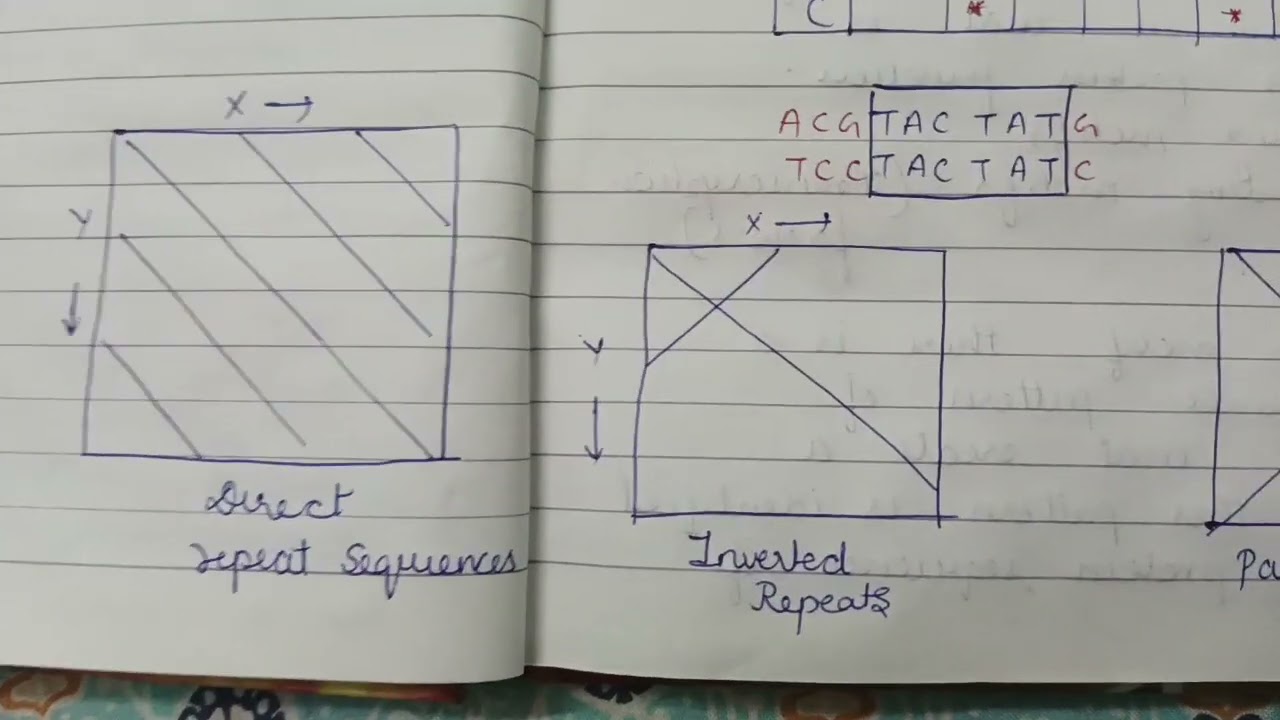 X →
Y
↓
Direct
repeat Sequences
C * *
ACG TAC TAT G
TCC TAC TAT C
X →
Y
↓
Inverted
Repeats
Pa